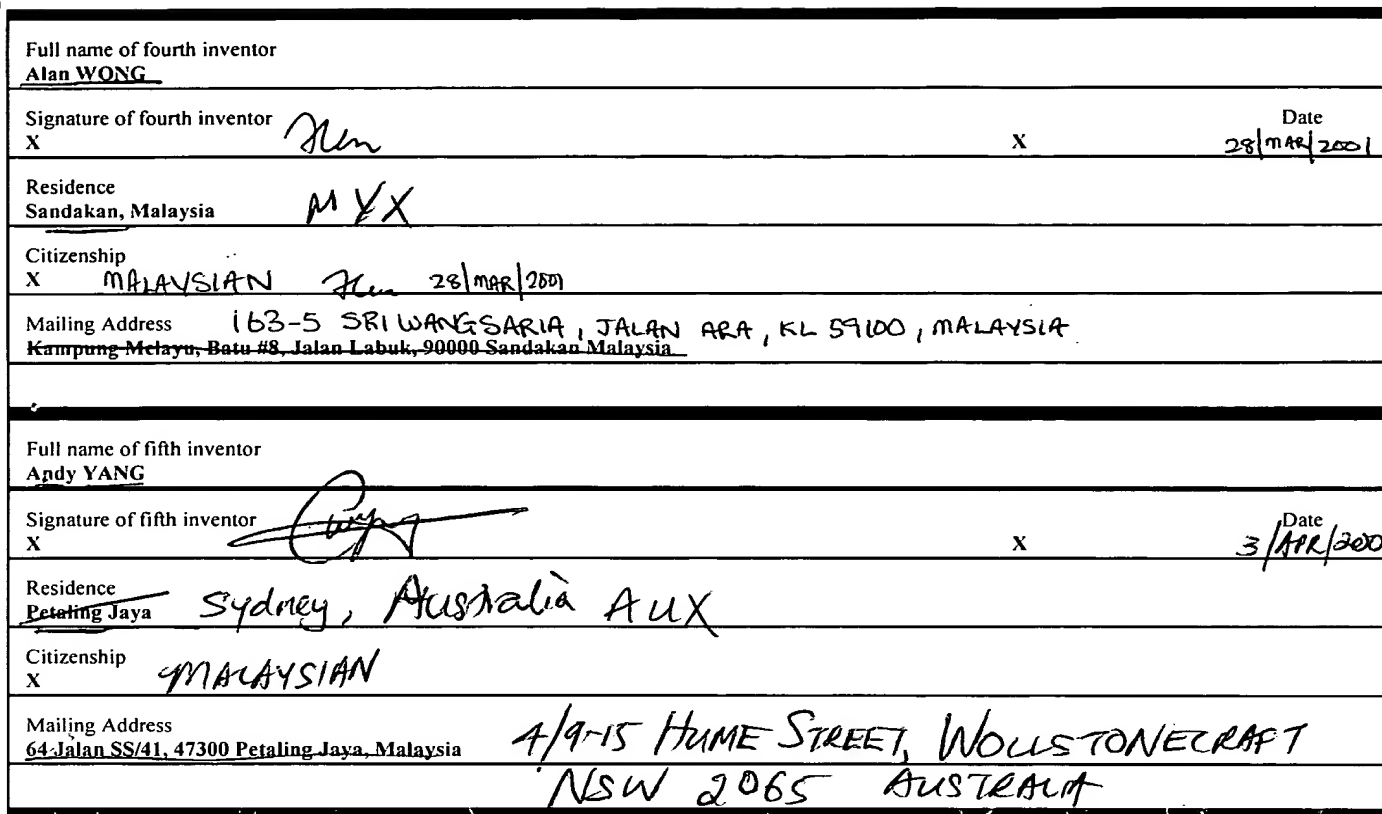 Full name of fourth inventor
Alan WONG
Signature of fourth inventor Date
X X 28/MAR/2001
Residence
Sandakan, Malaysia MYX
Citizenship
X MALAYSIAN 28/MAR/2001
Mailing Address 163-5 SRI WANGSARIA, JALAN ARA, KL 59100, MALAYSIA
Kampung Melayu, Batu #8, Jalan Labuk, 90000 Sandakan Malaysia
Full name of fifth inventor
Andy YANG
Signature of fifth inventor Date
X X 3/APR/200
Residence
Petaling Jaya Sydney, Australia AUX
Citizenship
X MALAYSIAN
Mailing Address
64 Jalan SS/41, 47300 Petaling Jaya, Malaysia 4/9-15 HUME STREET, WOLLSTONECRAFT
NSW 2065 AUSTRALIA